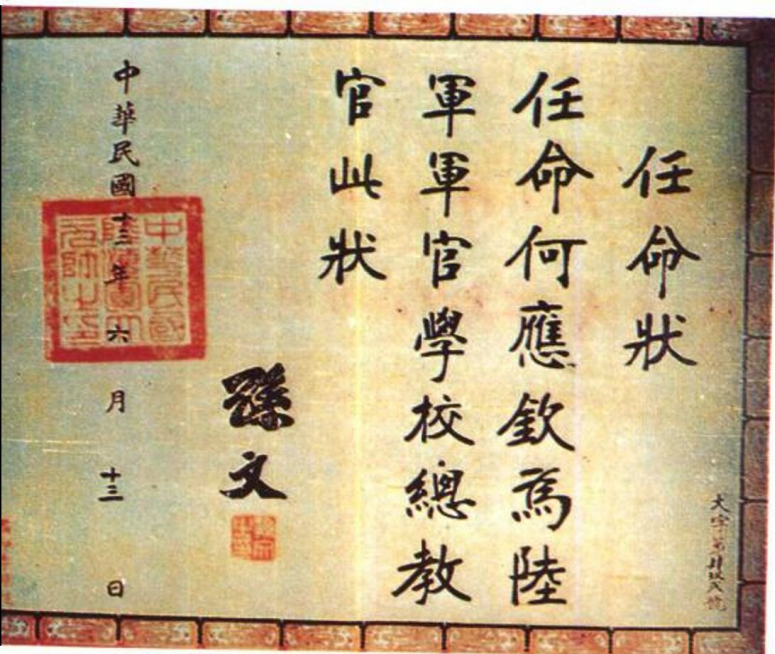 大字第號
任命狀
任命何應欽為陸
軍軍官學校總教
官此狀
孫文
中華民國十三年六月十三日
中華民國
陸海軍大
元帥之印